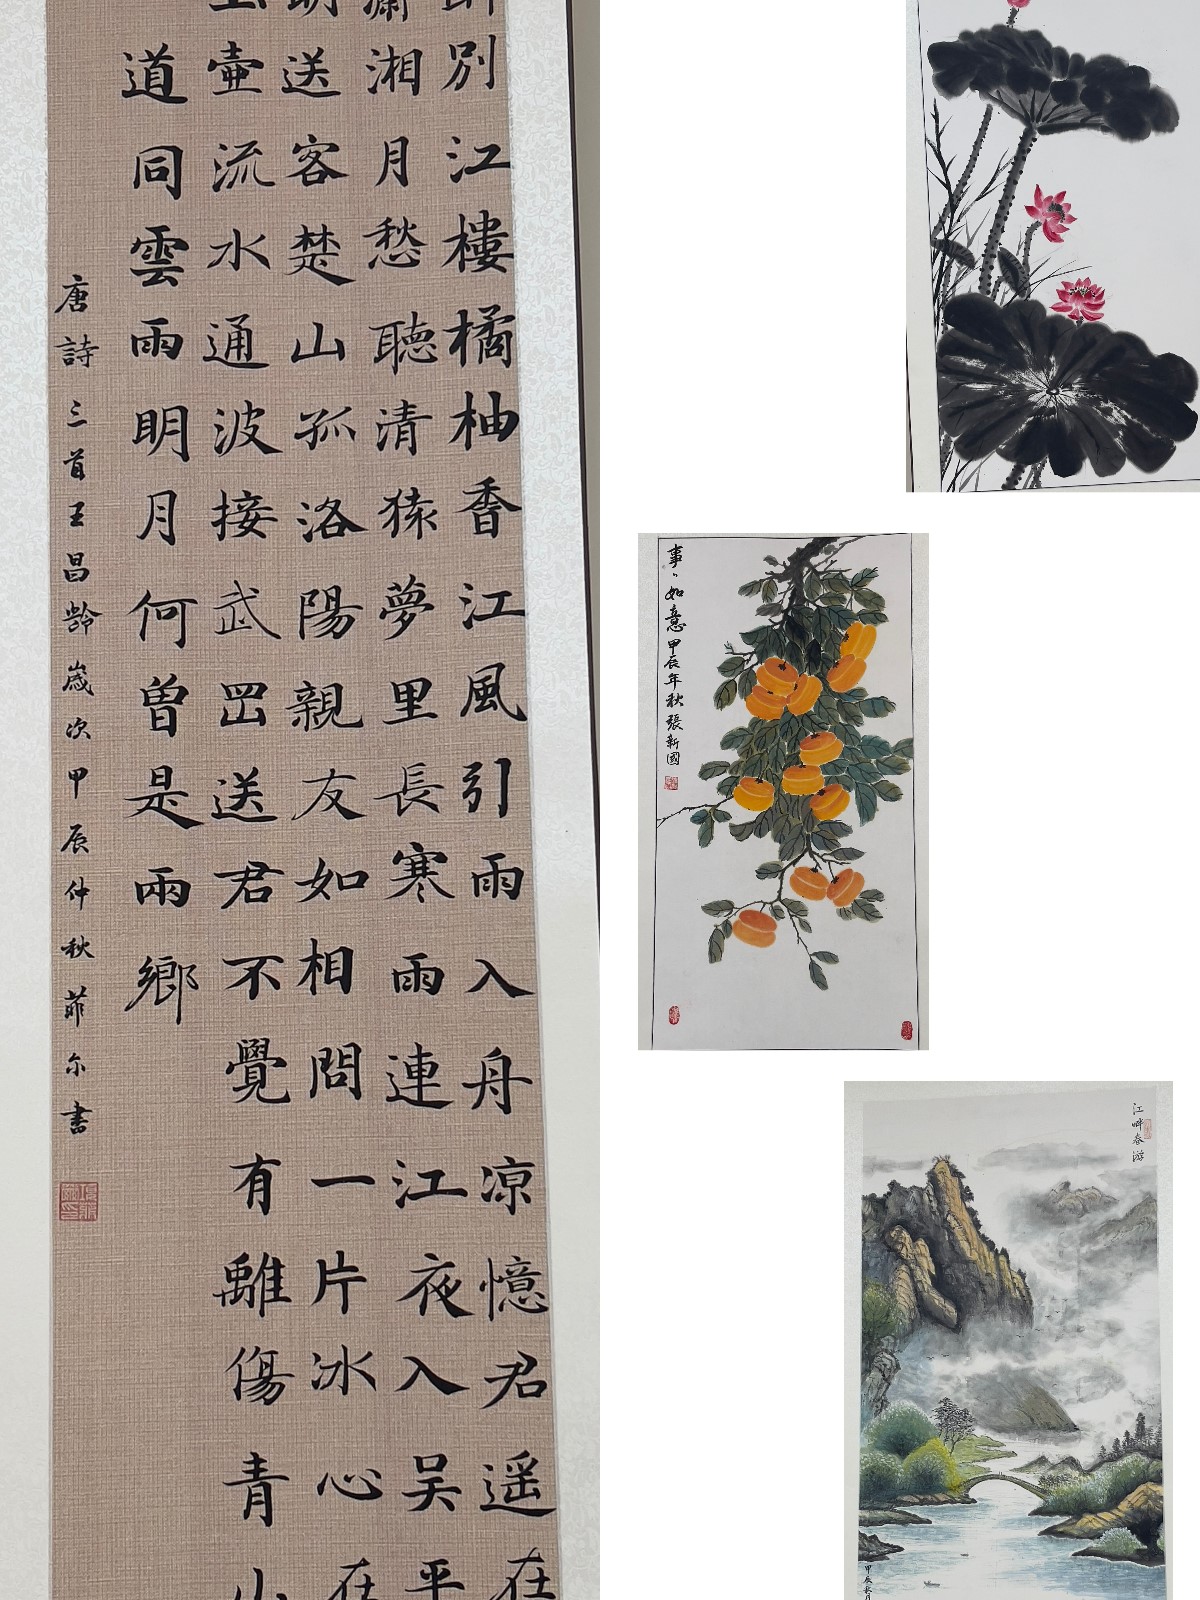 別江樓橘柚香江風引雨入舟凉憶君遥在
瀟湘月愁聽清猿夢里長寒雨連江夜入吴平
明送客楚山孤洛陽親友如相問一片冰心在
玉壺流水通波接武岡送君不覺有離傷青山
道同雲雨明月何曾是兩鄉
唐詩三首王昌齡嵗次甲辰仲秋菲尔書
事丶如意甲辰年秋張新國
江畔春游
甲辰秋月